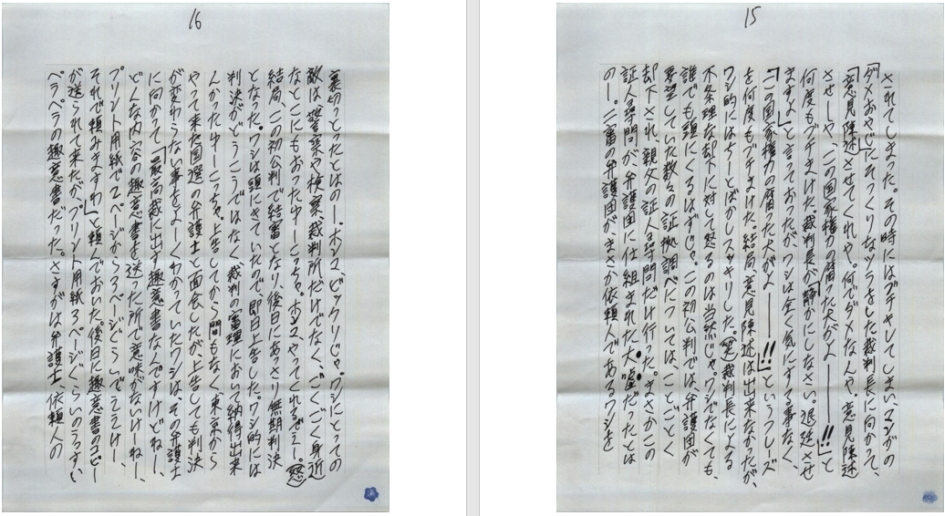 15
されてしまった。その時にはブチギレしてしまい、マンガの
「ダメおやじ」にそっくりなツラをした裁判長に向かって、
「意見陳述させてくれや。何でダメなんや。意見陳述
させーや、この国家権力の腐った犬がよ――――!!」と
何度もブチまけた。裁判長が「静かにしなさい。退廷させ
ますよ」と言っておったが、ワシは全く気にする事なく、
「この国家権力の腐った犬がよ――――!!」というフレーズ
を何度もブチまけた。結局、意見陳述は出来なかったが、
ワシ的にはちょっとばかしスッキリした。(笑)裁判長による
不条理な却下に対して怒るのは当然じゃ。ワシでなくても、
誰でも頭にくるはずじゃ。この初公判では、弁護団が
要望していた数々の証拠調べについては、ことごとく
却下され、親父の証人尋問だけ行った。まさかこの
証人尋問が弁護団に仕組まれた大嘘だったとは
のー。二審の弁護団がまさか依頼人であるワシを
16
裏切っとったとはのー。ホンマ、ビックリじゃ。ワシにとっての
敵は、警察や検察、裁判所だけでなく、ごくごく身近
なとこにもおったゆーこっちゃ。ホンマやってくれるぜぇー。(怒)
結局、この初公判で結審となり後日にあっさり無期判決
となった。ワシは頭にきていたので、即日上告した。ワシ的には
判決がどうこうではなく、裁判の審理において納得出来
んかったゆーこっちゃ。上告してから間もなく、東京から
やって来た国選の弁護士と面会したが、上告しても判決
が変わらない事をよーくわかっていたワシは、その弁護士
に向かって「最高裁に出す趣意書なんですけどねー、
どんな内容の趣意書を送った所で意味がないけーねー、
プリント用紙で2ページから3ページぐらいでええけー、
それで頼みますわ」と頼んでおいた。後日に趣意書のコピー
が送られて来たが、プリント用紙3ページぐらいのうっすい
ペラペラの趣意書だった。さすがは弁護士、依頼人の